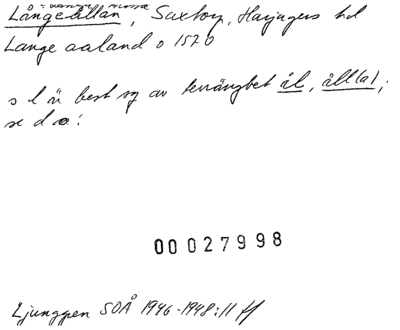 Långeållan, Saxtorp, Harjagers hd
Lange aaland o 1570
s l är best sg av terrängbet ål, åll(a);
se d o:
00027998
Ljunggren SOÅ 1946-1948:11 ff